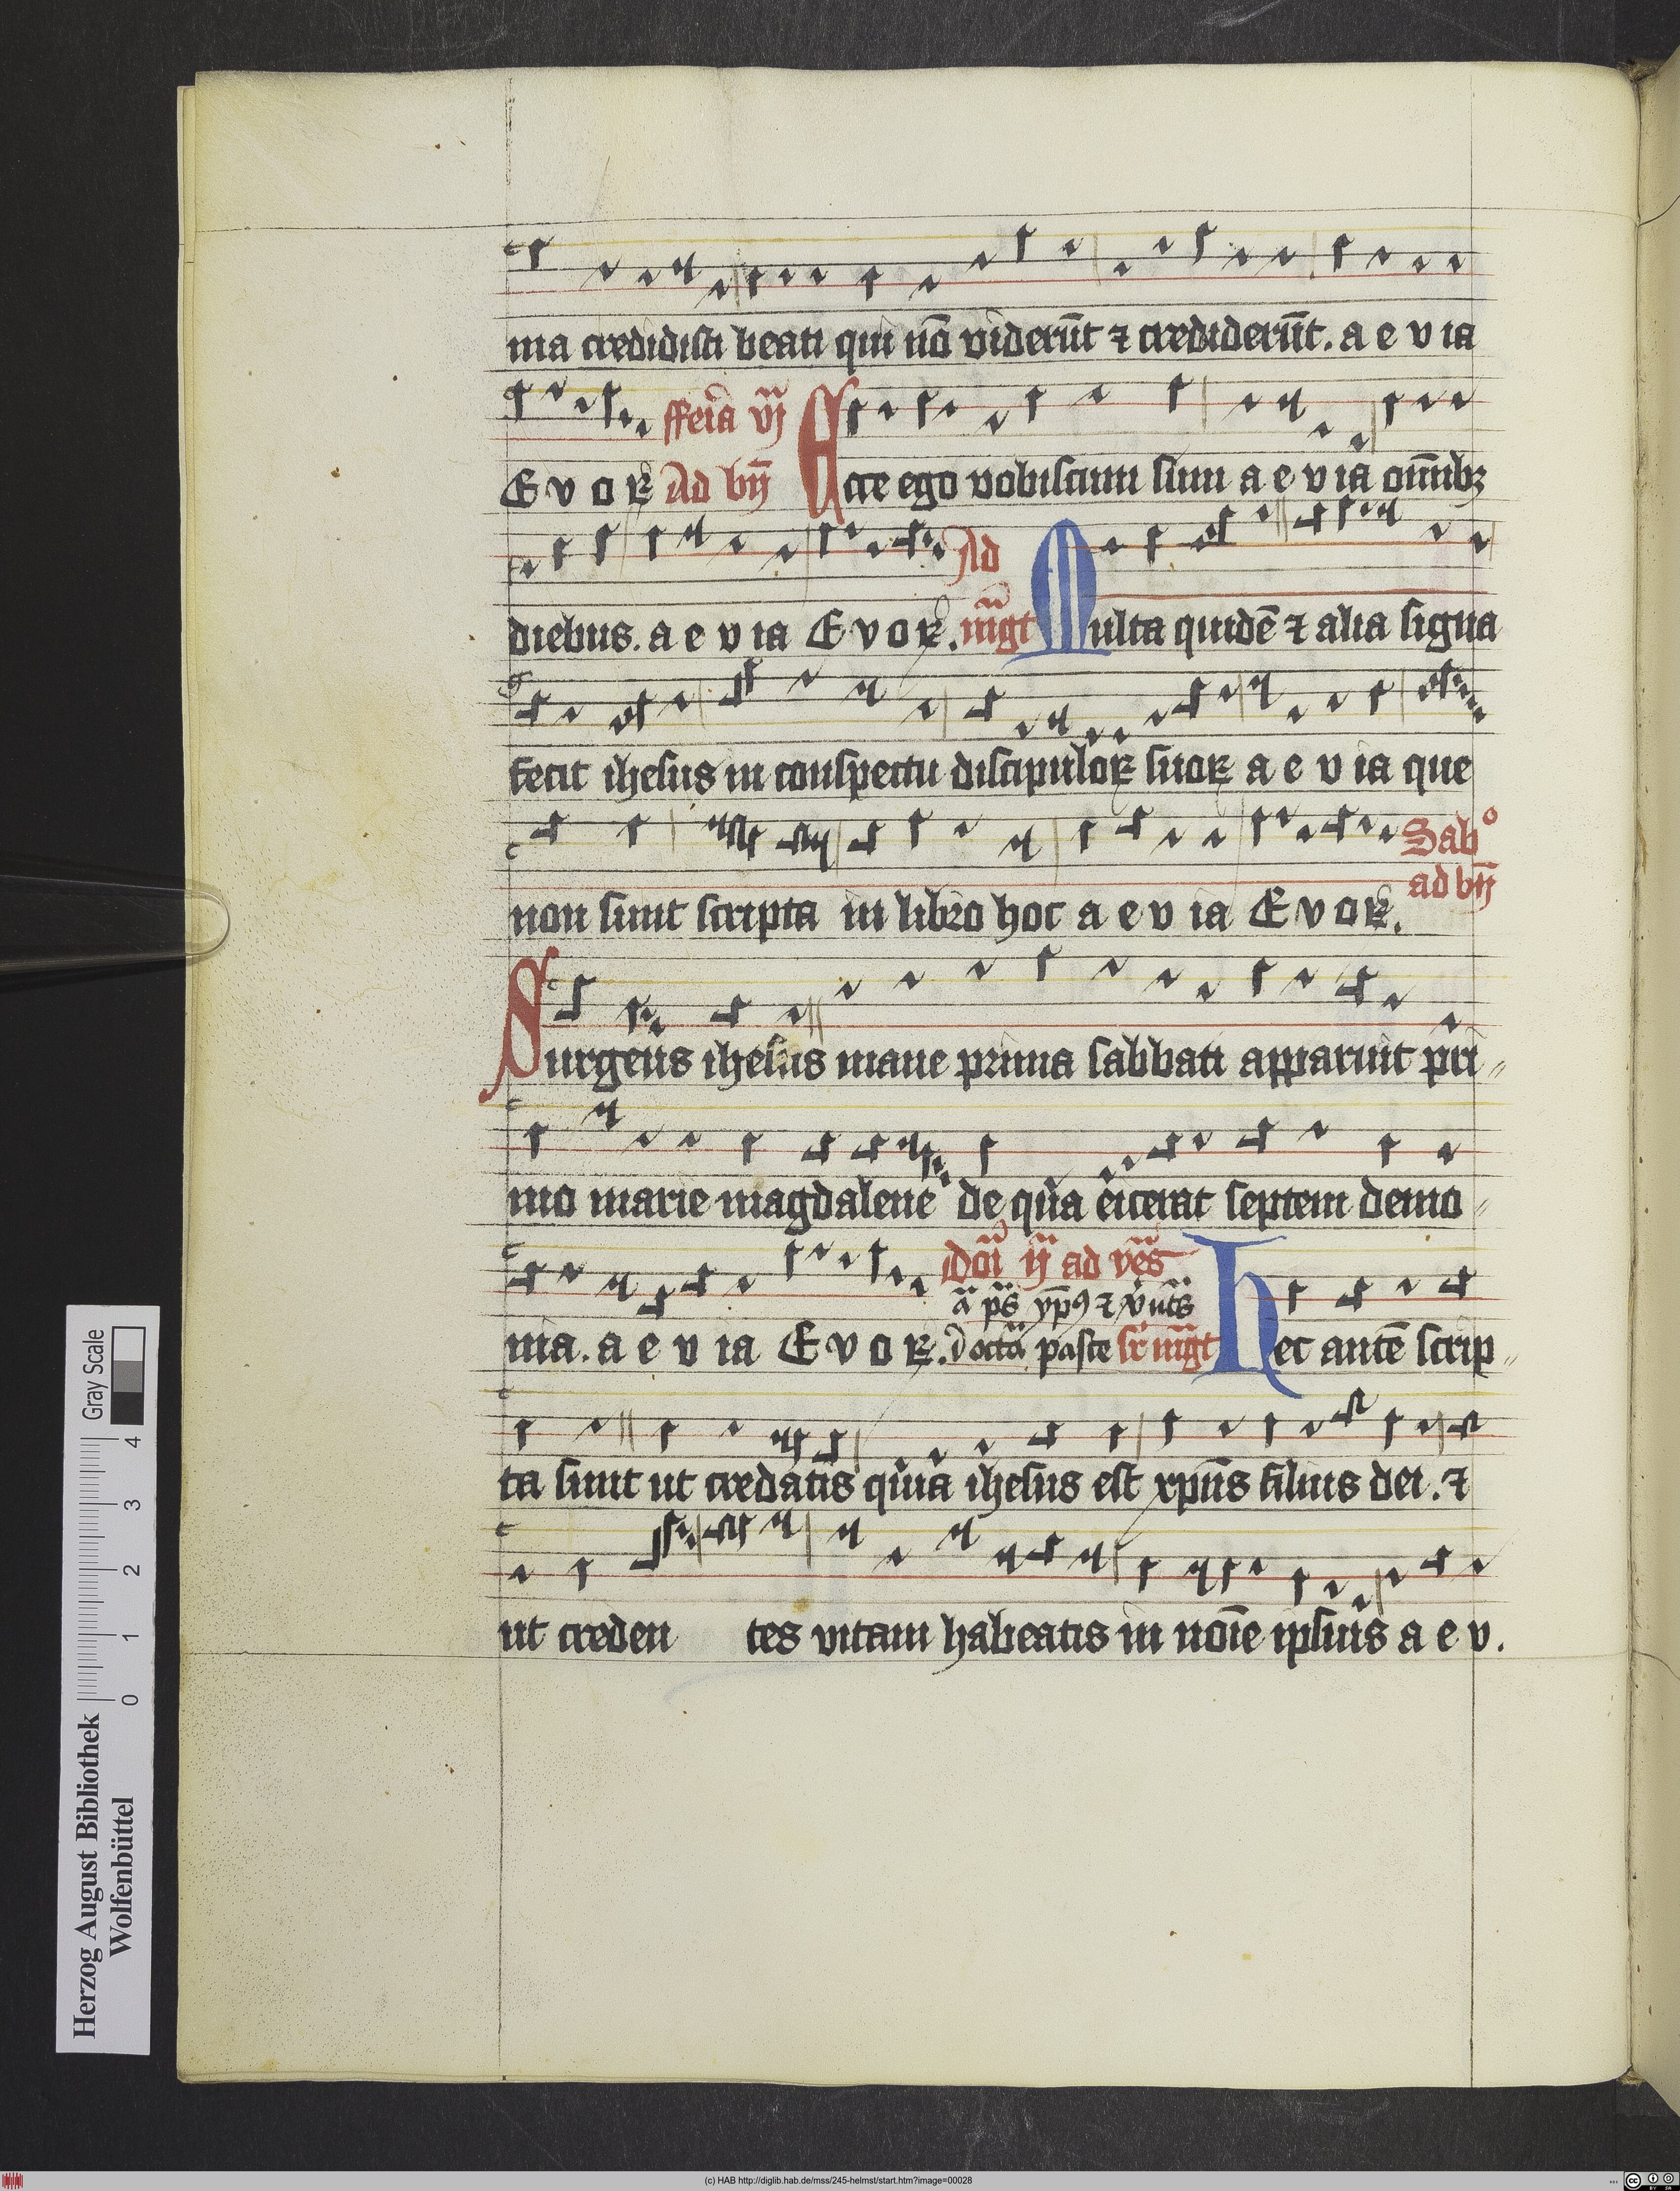 ma credidisti beati qui nō viderūt ⁊ crediderūt. a e v ia
ffeīa vj
E v o ꝝ Ad bn̄ Ecce ego vobiscum sum a e v ia om̄ibꝫ
Ad
diebus. a e v ia E v o ꝝ. m̄gt Multa quidē ⁊ alia signa
fecit ihesus in conspectu discipuloꝝ suoꝝ a e v ia que
Sabᵒ
ad bn̄
non sunt scripta in libro hoc a e v ia E v o ꝝ.
Surgens ihesus mane prima sabbati apparuit pri〃
mo marie magdalene de qua eicerat septem demo〃
ad ves
nia. a e v ia E v o ꝝ. m̄gt Hec autē scrip〃
ta sunt ut credatis quia ihesus est xp̄us filius dei. ⁊
ut creden tes vitam habeatis in noīe ipsius a e v.
Herzog August Bibliothek
Wolfenbüttel
0 1 2 3 4
Gray Scale
(c) HAB http://diglib.hab.de/mss/245-helmst/start.htm?image=00028